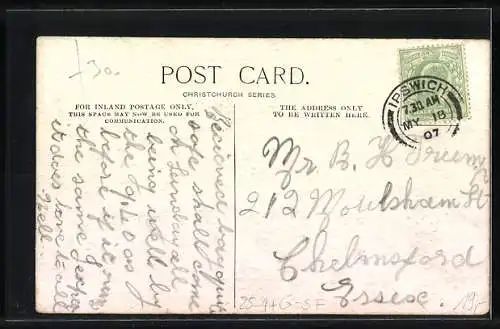 -30
POST CARD.
CHRISTCHURCH SERIES.
FOR INLAND POSTAGE ONLY,
THIS SPACE MAY NOW BE USED FOR
COMMUNICATION.
THE ADDRESS ONLY
TO BE WRITTEN HERE.
IPSWICH
7.30 AM
MY 18
07
Recieved bag quite
safe shall come
on Sunday all
being well by
the 9.40 as
before if it runs
the same
Nell.
Mr B. H
212 Moulsham St
Chelmsford
Essex.